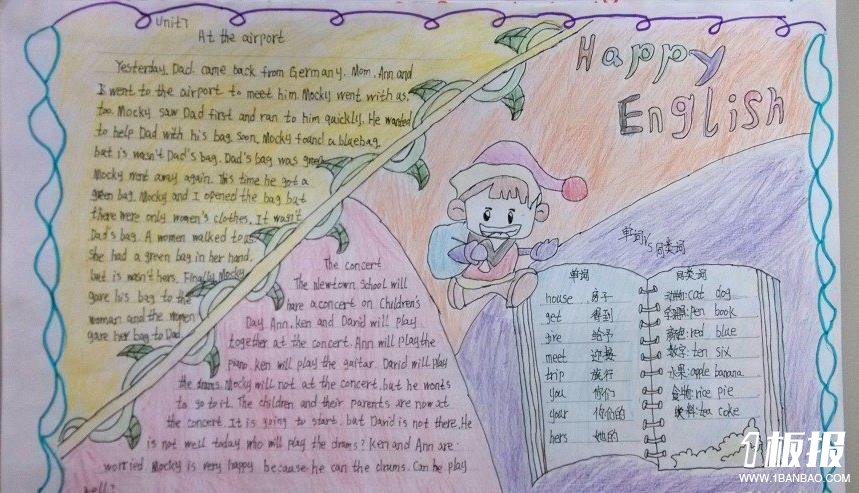 Unit7
At the airport
Yesterday, Dad came back from Germany. Mom, Ann and
I went to the airport to meet him. Mocky went with us,
too. Mocky saw Dad first and ran to him quickly. He wanted
to help Dad with his bag. Soon, Mocky found a bluebag,
but is wasn't Dad's bag. Dad's bag was green
Mocky went away again. This time he got a
green bag. Mocky and I opened the bag but
there were only women's clothes. It wasn't
Dad's bag. A women walked to us
She had a green bag in her hand,
but is wasn't hers. Finally Mocky
gave his beg to the
woman and the women
gave her bag to Dad
The concert
The Newtown School will
have a concert on Children's
Day. Ann, Ken and David will play
together at the concert. Ann will play the
piano. Ken will play the guitar. David will play
the drums. Mocky will not at the concert, but he wants
to go to it. The children and their parents are now at
the concert. It is going to start, but David is not there. He
is not well today who will play the drams? Ken and Ann are
worried Mocky is very happy because he can the drums. Can he play
well?
Happy
English
单词VS同类词
单词
house 房子
get 得到
give 给予
meet 迎接
trip 旅行
you 你们
your 你们的
hers 她的
同类词
动物:cat dog
pen book
颜色:red blue
数字:ten six
水果:apple banana
食物:rice pie
饮料:tea coke
板报
WWW.1BANBAO.COM